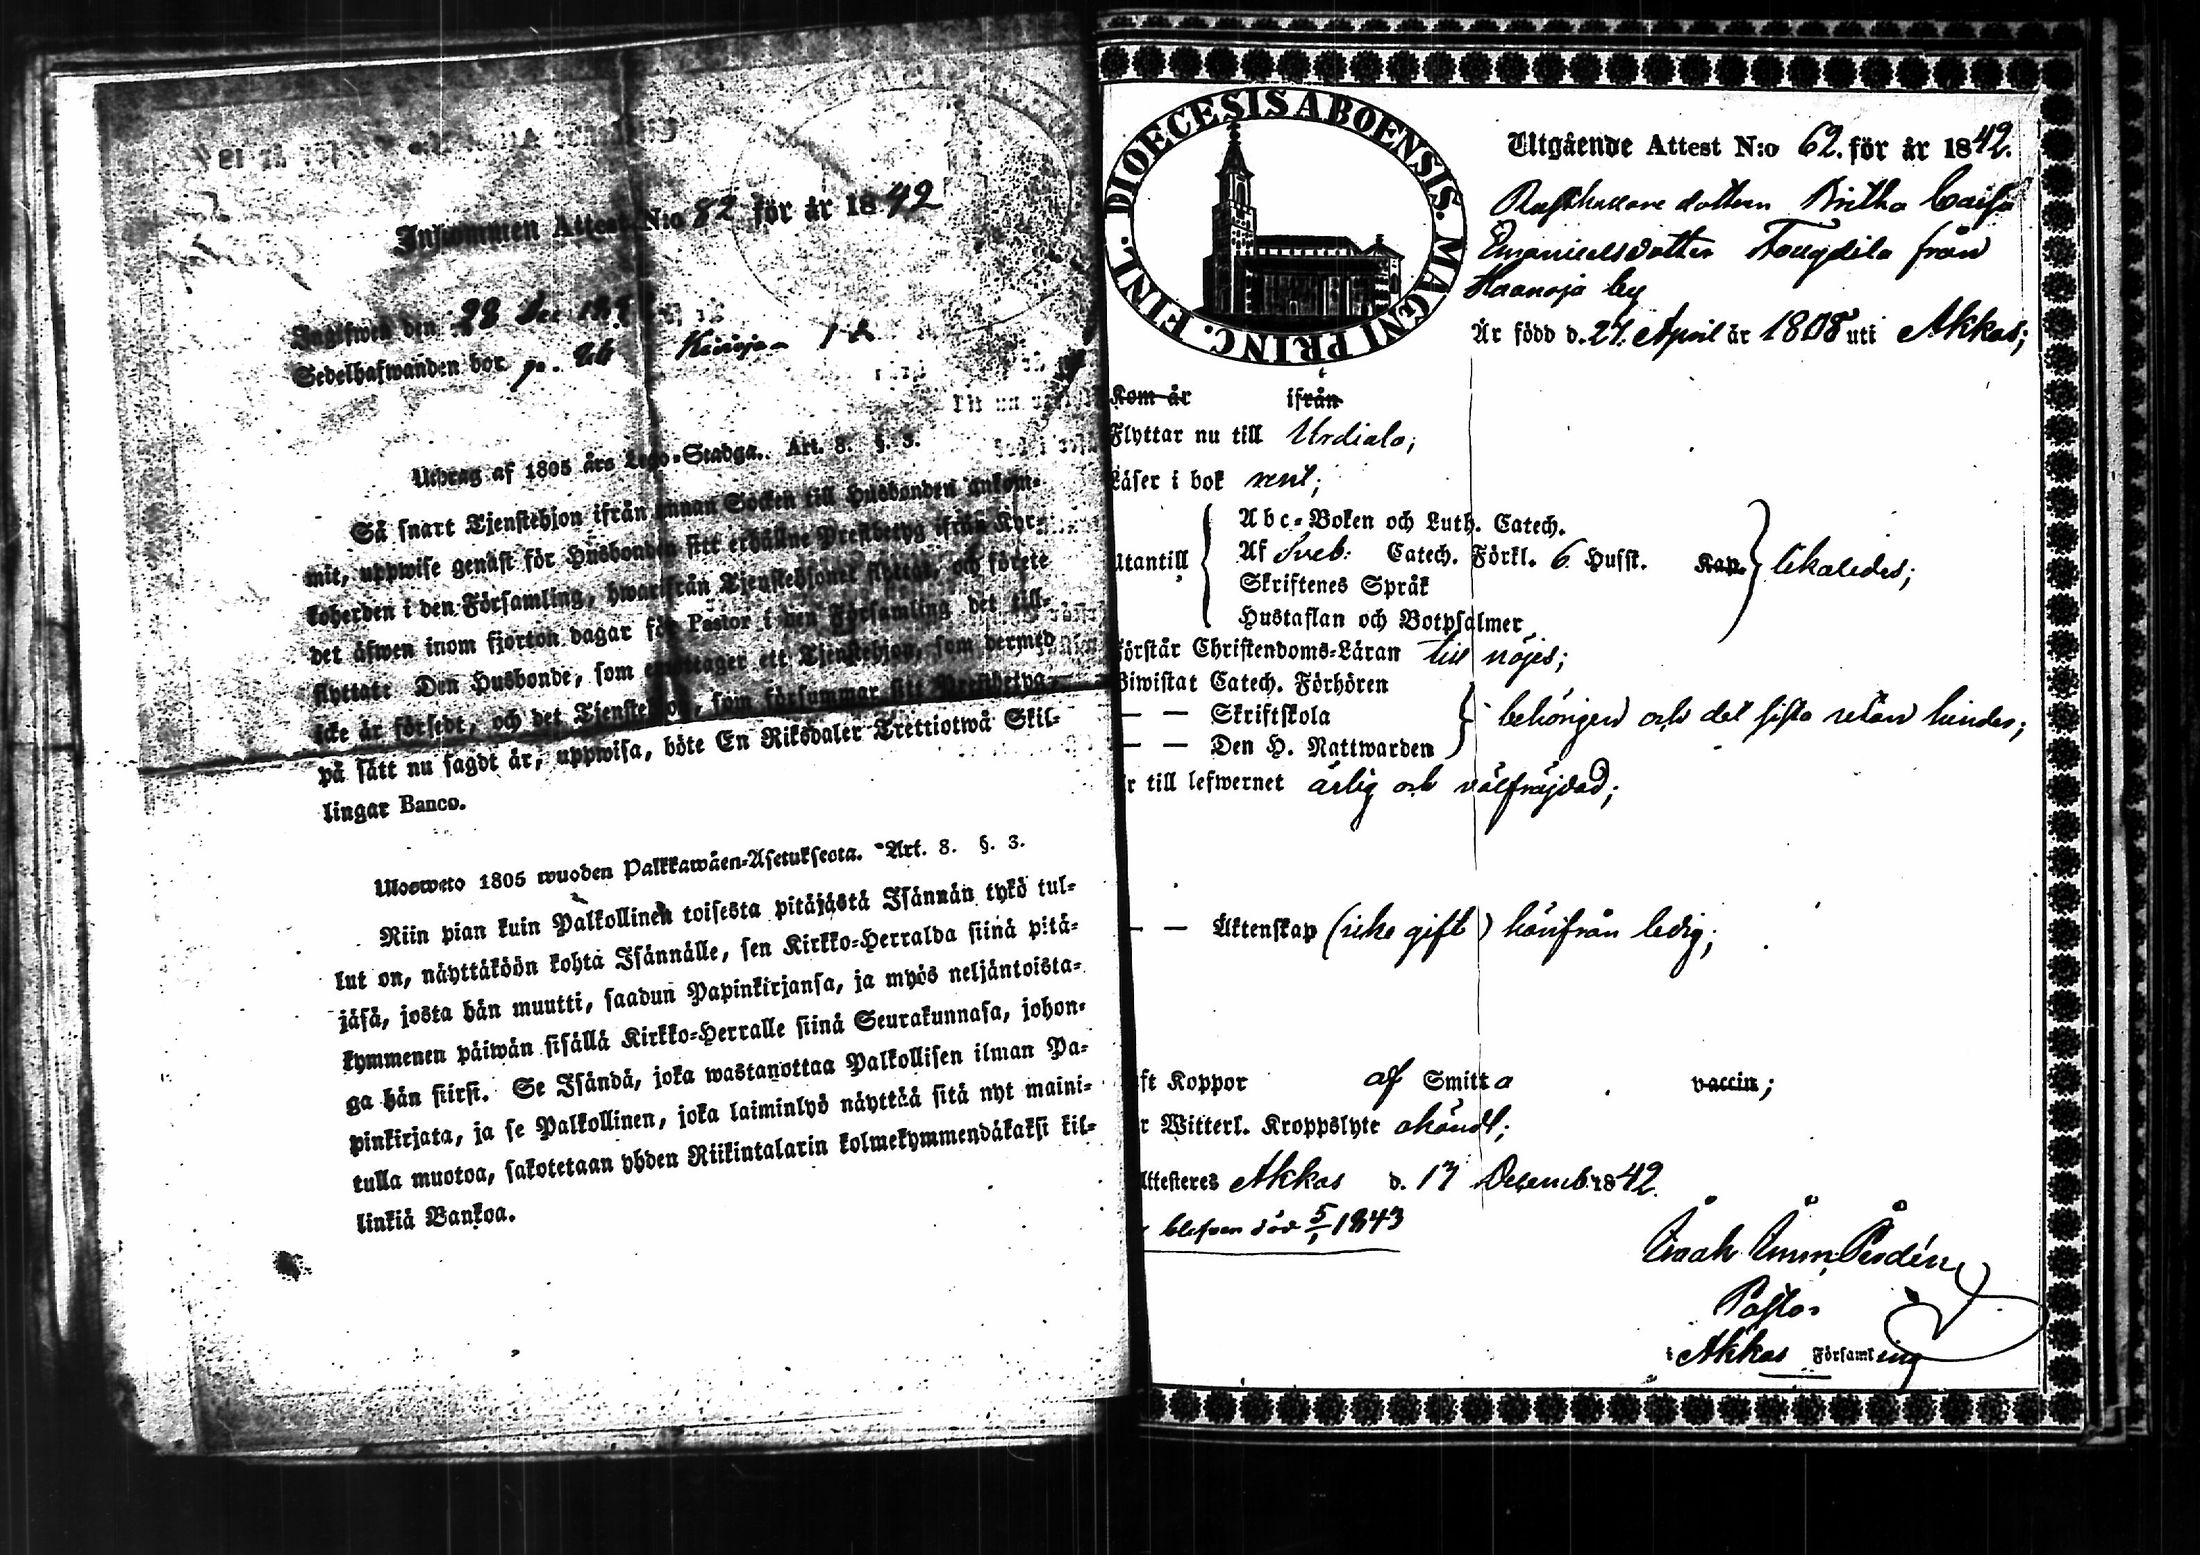 Inkommen Attest N:o 82 för år 1842
Ingifwen den 28 Dec
Sedelhafwanden bor på
Utdrag af 1805 års Lego-Stadga. Art. 8. §. 3.
Så snart Tjenstehjon ifrån annan Socken till Husbonden ankom-
mit, uppwise genast för Husbonden sitt erhållne Prestbetyg ifrån Kyr-
koherden i den Församling, hwarifrån Tjenstehjonet flyttat, och förete
det äfwen inom fjorton dagar för Pastor i den Församling det till-
flyttat. Den Husbonde, som emottager ett Tjenstehjon, som dermed
icke är försedt, och det Tjenstehjon, som försummar sitt Prestbetyg,
på sätt nu sagdt är, uppwisa, böte En Riksdaler Trettiotwå Skil-
lingar Banco.
Ulosweto 1805 wuoden Palkkawäen-Asetuksesta. Art. 8. §. 3.
Niin pian kuin Palkollinen toisesta pitäjästä Isännän tykö tul-
lut on, näyttäköön kohta Isännälle, sen Kirkko-Herralda siinä pitä-
jäsä, josta hän muutti, saadun Papinkirjansa, ja myös neljäntoista-
kymmenen päiwän sisällä Kirkko-Herralle siinä Seurakunnasa, johon-
ga hän siirsi. Se Isändä, joka wastanottaa Palkollisen ilman Pa-
pinkirjata, ja se Palkollinen, joka laiminlyö näyttää sitä nyt maini-
tulla muotoa, sakotetaan yhden Riikintalarin kolmekymmendäkaksi kil-
linkiä Bankoa.
DIOECESIS ABOENSIS. MAGNI PRINC. FINL.
Utgående Attest N:o 62. för år 1842.
Rusthållare dottern Britha Caisa
Emanuelsdotter från
Haanoja by
Är född d. 27. April år 1808 uti Akkas;
Kom år ifrån
Flyttar nu till Urdiala;
Läser i bok rent;
Abc-Boken och Luth. Catech.
Utantill Af Sveb: Catech. Förkl. 6 Hufst. Kap. likaledes;
Skriftenes Språk
Hustaflan och Botpsalmer
Förstår Christendoms-Läran till nöjes;
Biwistat Catech. Förhören
— — Skriftskola behörigen och det sista utan hinder;
— — Den H. Nattwarden
r till lefwernet ärlig och välfräjdad;
— — Äktenskap (icke gift) härifrån ledig;
ft Koppor af Smitta vaccin;
r Witterl. Kroppslyte okändt;
Attesteres Akkas d. 17 Decemb. 1842.
blefven död 5/1 1843
Pastor
i Akkas Församling